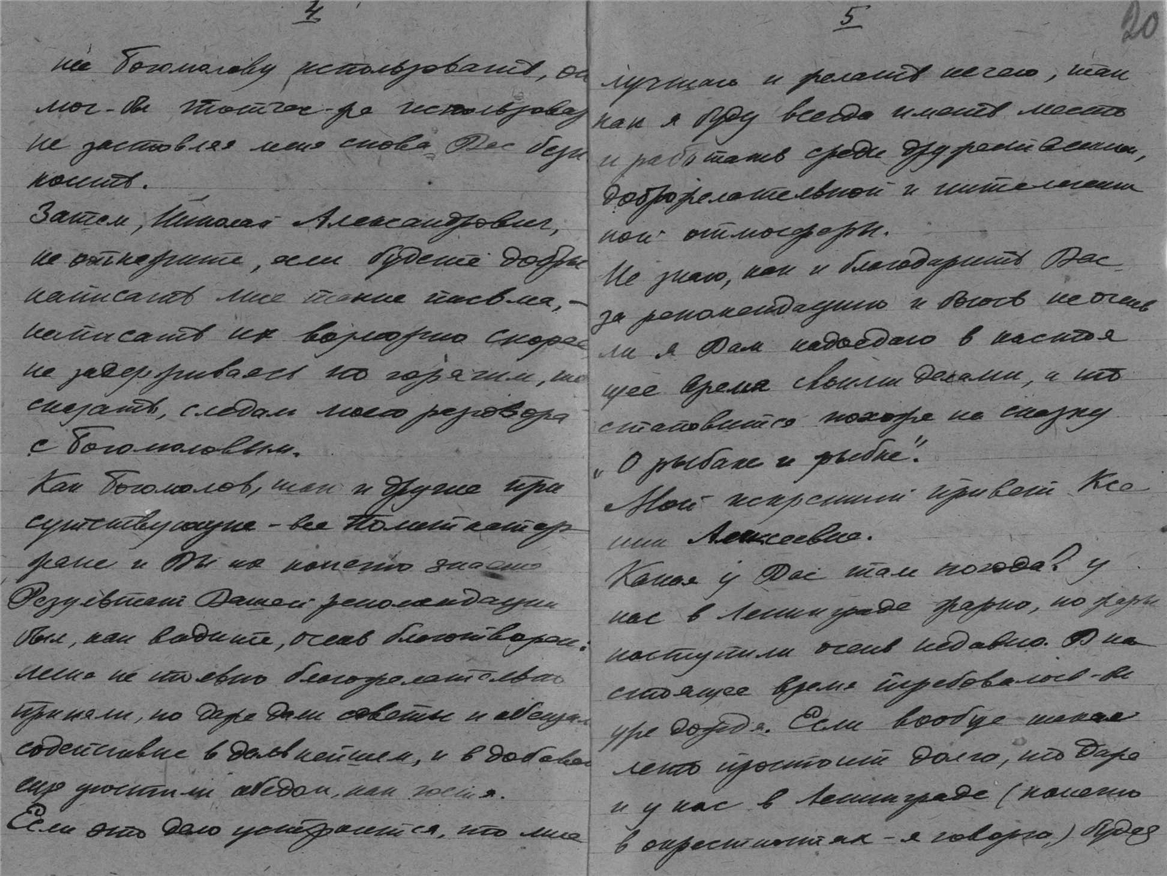 4
не Богомолову использовать, он
мог-бы тотчас-же использовать
не заставляя меня снова Вас беспо
коить.
Затем, Николай Александрович,
не откажите, если будете добры
написать мне такие письма, –
написать их возможно скорее
не задерживаясь по горячим, так
сказать, следам моего разговора
с Богомоловым.
Как Богомолов, так и другие при
сутствующие – все
и Вы их конечно знаете
Результат Вашей рекомендации
был, как видите, очень благотворен:
меня не только благожелательно
приняли, но даже дали советы и обещали
содействие в дальнейшем, и в добавок
еще угостили обедом, как гостя.
Если это дело устроится, то мне
5
20
лучшего и желать нечего, так
как я буду всегда иметь место
и работать среди дружественной,
доброжелательной и интелигент
ной атмосферы.
Не знаю, как и благодарить Вас
за рекомендацию и боюсь не очень
ли я Вам надоедаю в настоя
щее время своими делами, и то
становится похоже на сказку
„О рыбаке и рыбке".
Мой искренний привет Ксе
нии Алексеевне.
Какая у Вас там погода? у
нас в Ленинграде жарко, но жары
наступили очень недавно. В на
стоящее время требовалось-бы
уже дождя. Если вообще такое
лето простоит долго, то даже
и у нас в Ленинграде (конечно
в окрестностях – я говорю) будет